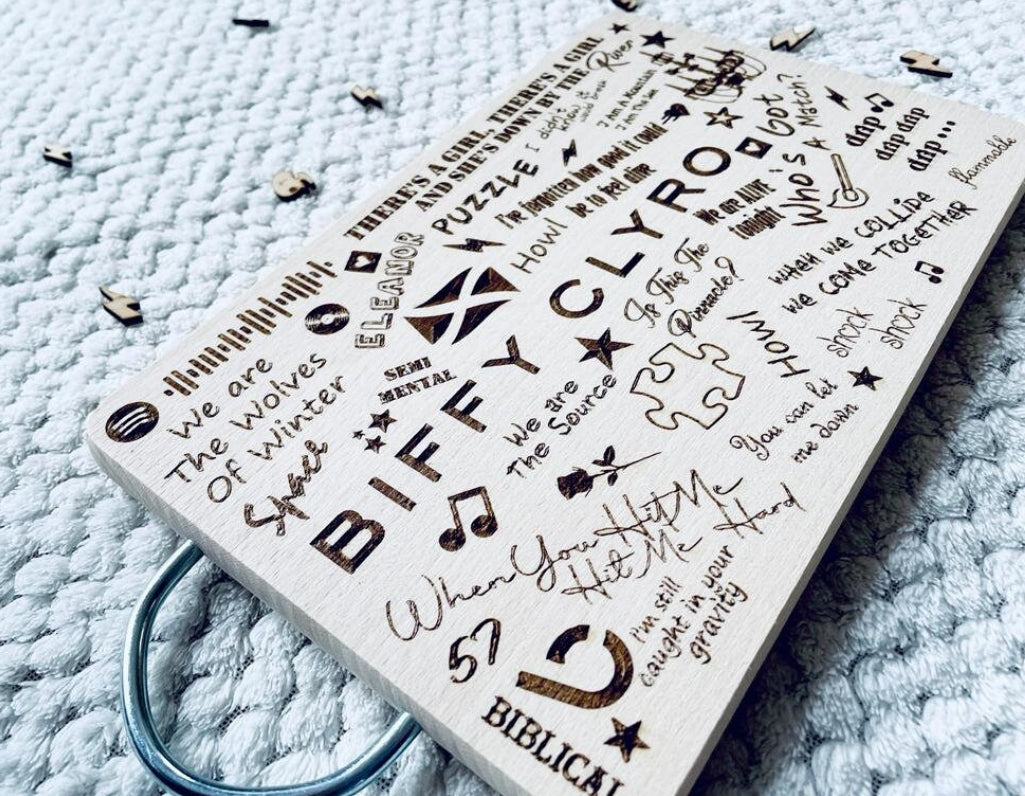 THERE'S A GIRL, THERE'S A GIRL
AND SHE'S DOWN BY THE River
PUZZLE
I
didn't
know it
I Am A Mountain
I Am The Sea
I've forgotten how good it could
be to feel alive
HOWL
ELEANOR
BIFFY CLYRO
We are ALIVE
tonight
Got
Who's A Match?
ddp
ddp ddp
ddp...
flammable
when we COLLIDE
we COME TOGETHER
Is This The
Pinnacle?
HOWl
shock
shock
You can let
me down
We are
The Wolves
Of Winter
Space
SEMI
MENTAL
We are
The Source
When You Hit Me
Hit Me Hard
57
I'm still
caught in your
gravity
BIBLICAL